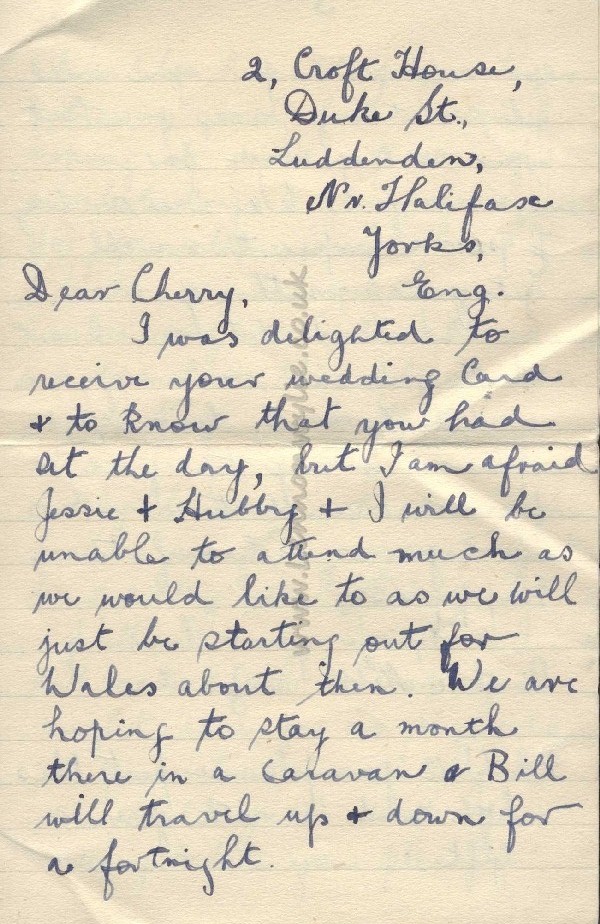 2, Croft House,
Duke St.,
Luddenden,
Nr. Halifax
Yorks,
Eng.
Dear Cherry,
I was delighted to
receive your wedding Card
& to know that you had
set the day, but I am afraid
Jessie & Hubby & I will be
unable to attend much as
we would like to as we will
just be starting out for
Wales about then. We are
hoping to stay a month
there in a Caravan & Bill
will travel up & down for
a fortnight.